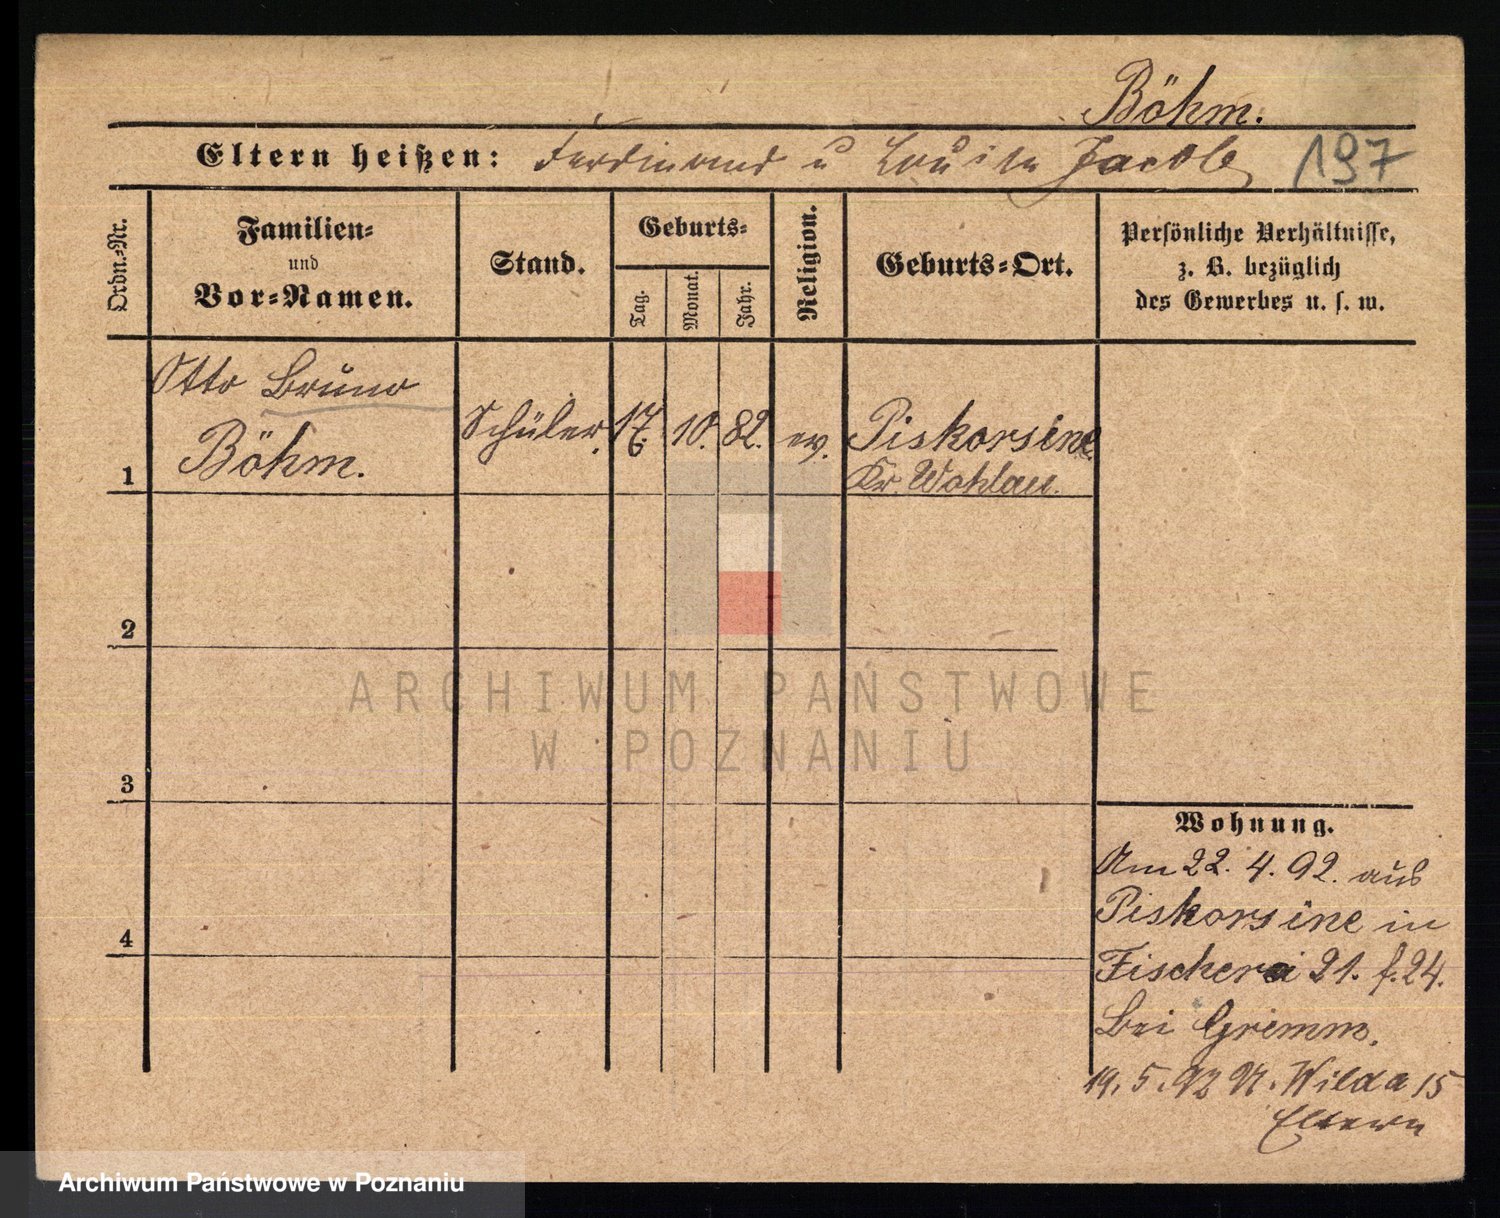 Böhm.
Eltern heißen: Ferdinand u Louise Jacob
197
Ordn.-Nr.
Familien-
und
Vor-Namen.
Stand.
Geburts-
Tag.
Monat.
Jahr.
Religion.
Geburts-Ort.
Persönliche Verhältnisse,
z. B. bezüglich
des Gewerbes u. s. w.
Otto Bruno
Böhm.
Schüler.
17.
6.
10.
82.
ev.
Piskorsine
Kr. Wohlau.
1
2
3
4
ARCHIWUM PAŃSTWOWE
W POZNANIU
Wohnung.
Am 22. 4. 92. aus
Piskorsine in
Fischerei 21. f. 24.
bei Grimm.
19. 5. 92 N. Wilda 15
Eltern
Archiwum Państwowe w Poznaniu